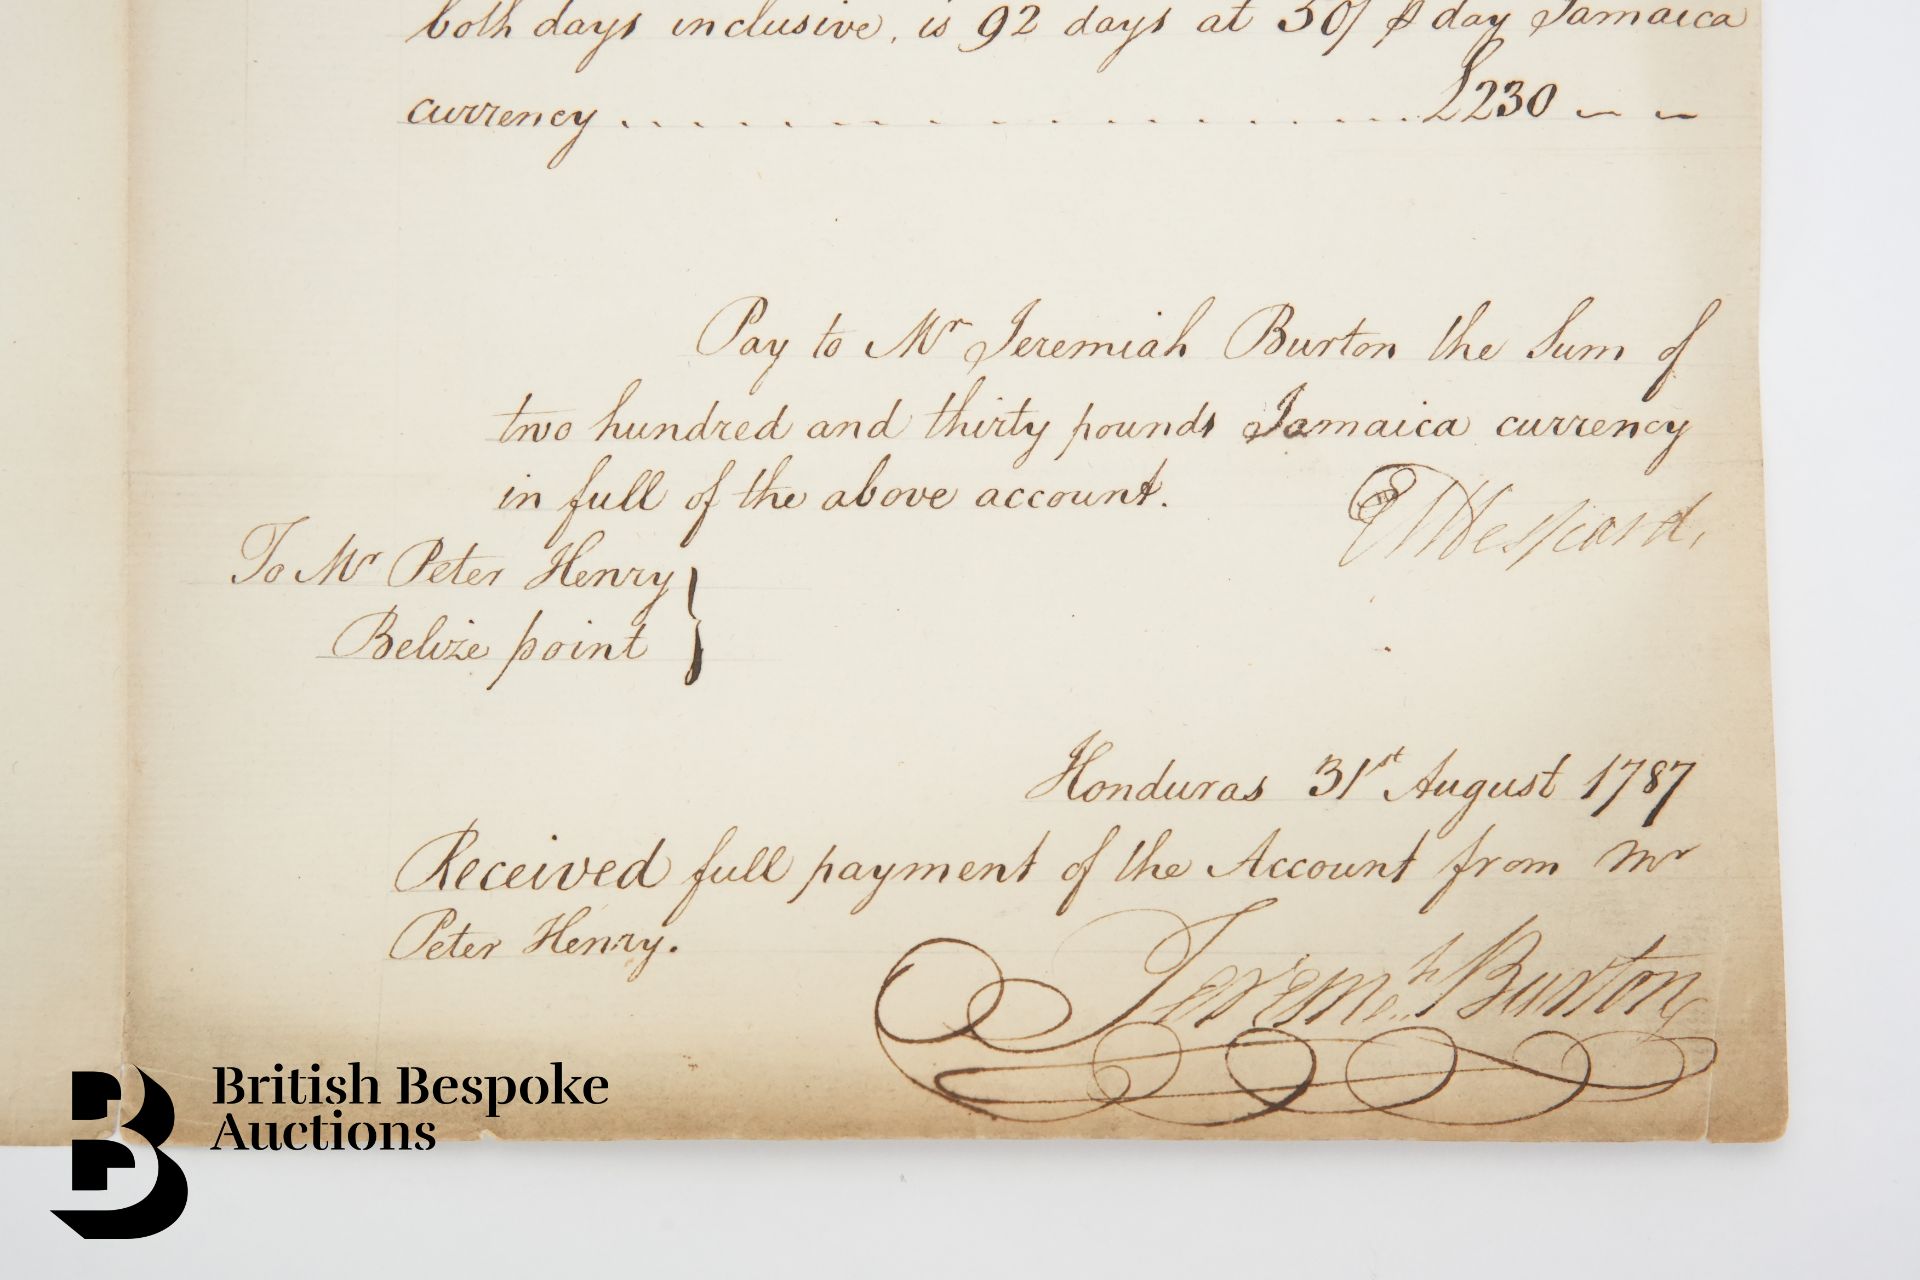 both days inclusive, is 92 days at 50/ ⅌ day Jamaica
currency . . . . . . . . . . . . . . . . . . . £230 ~ ~
Pay to Mr Jeremiah Burton the Sum of
two hundred and thirty pounds Jamaica currency
in full of the above account.
Despard,
To Mr Peter Henry
Belize point
Honduras 31st August 1787
Received full payment of the Account from Mr
Peter Henry.
Jeremh Burton
British Bespoke
Auctions